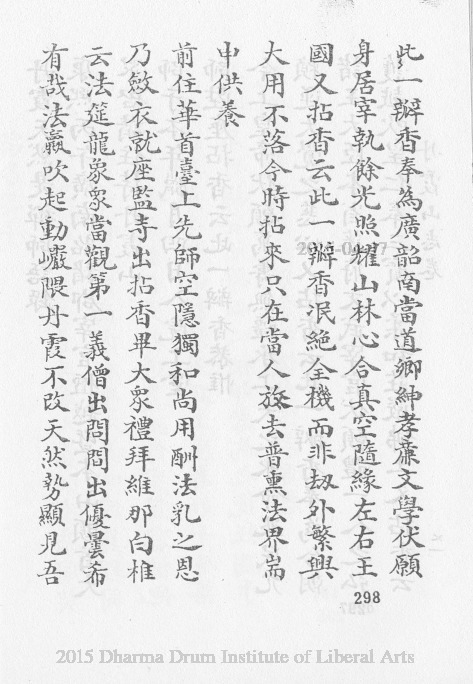 此一瓣香奉為廣韶南當道鄉紳孝廉文學伏願
身居宰執餘光照耀山林心合真空隨緣左右王
國又拈香云此一瓣香泯絕全機而非劫外繁興
大用不落今時拈來只在當人放去普熏法界耑
申供養
前住華首臺上先師空隱獨和尚用酬法乳之恩
乃斂衣就座監寺出拈香畢大眾禮拜維那白椎
云法筵龍象眾當觀第一義僧出問問出優曇希
有哉法蠃吹起動巖隈丹霞不改天然勢顯見吾
298
2015 Dharma Drum Institute of Liberal Arts